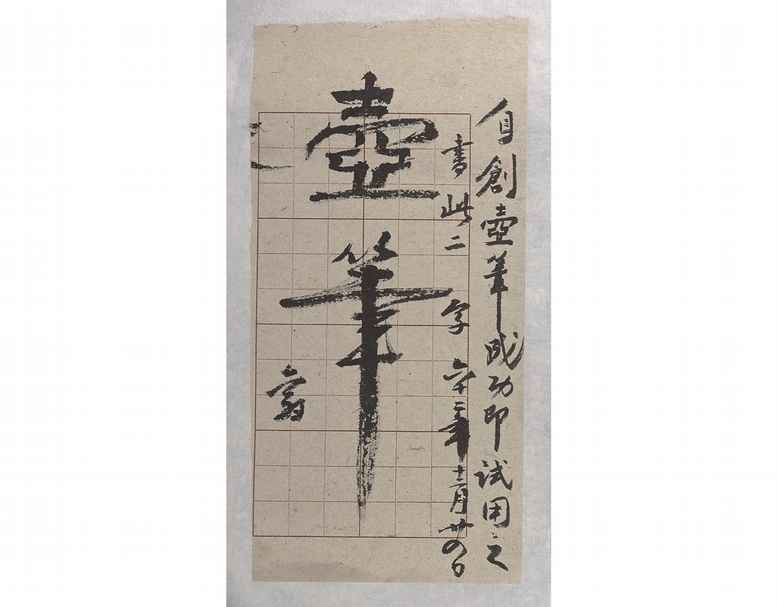 自創壺筆成功即試用之
書此二字六十二年十二月廿四日
壺筆